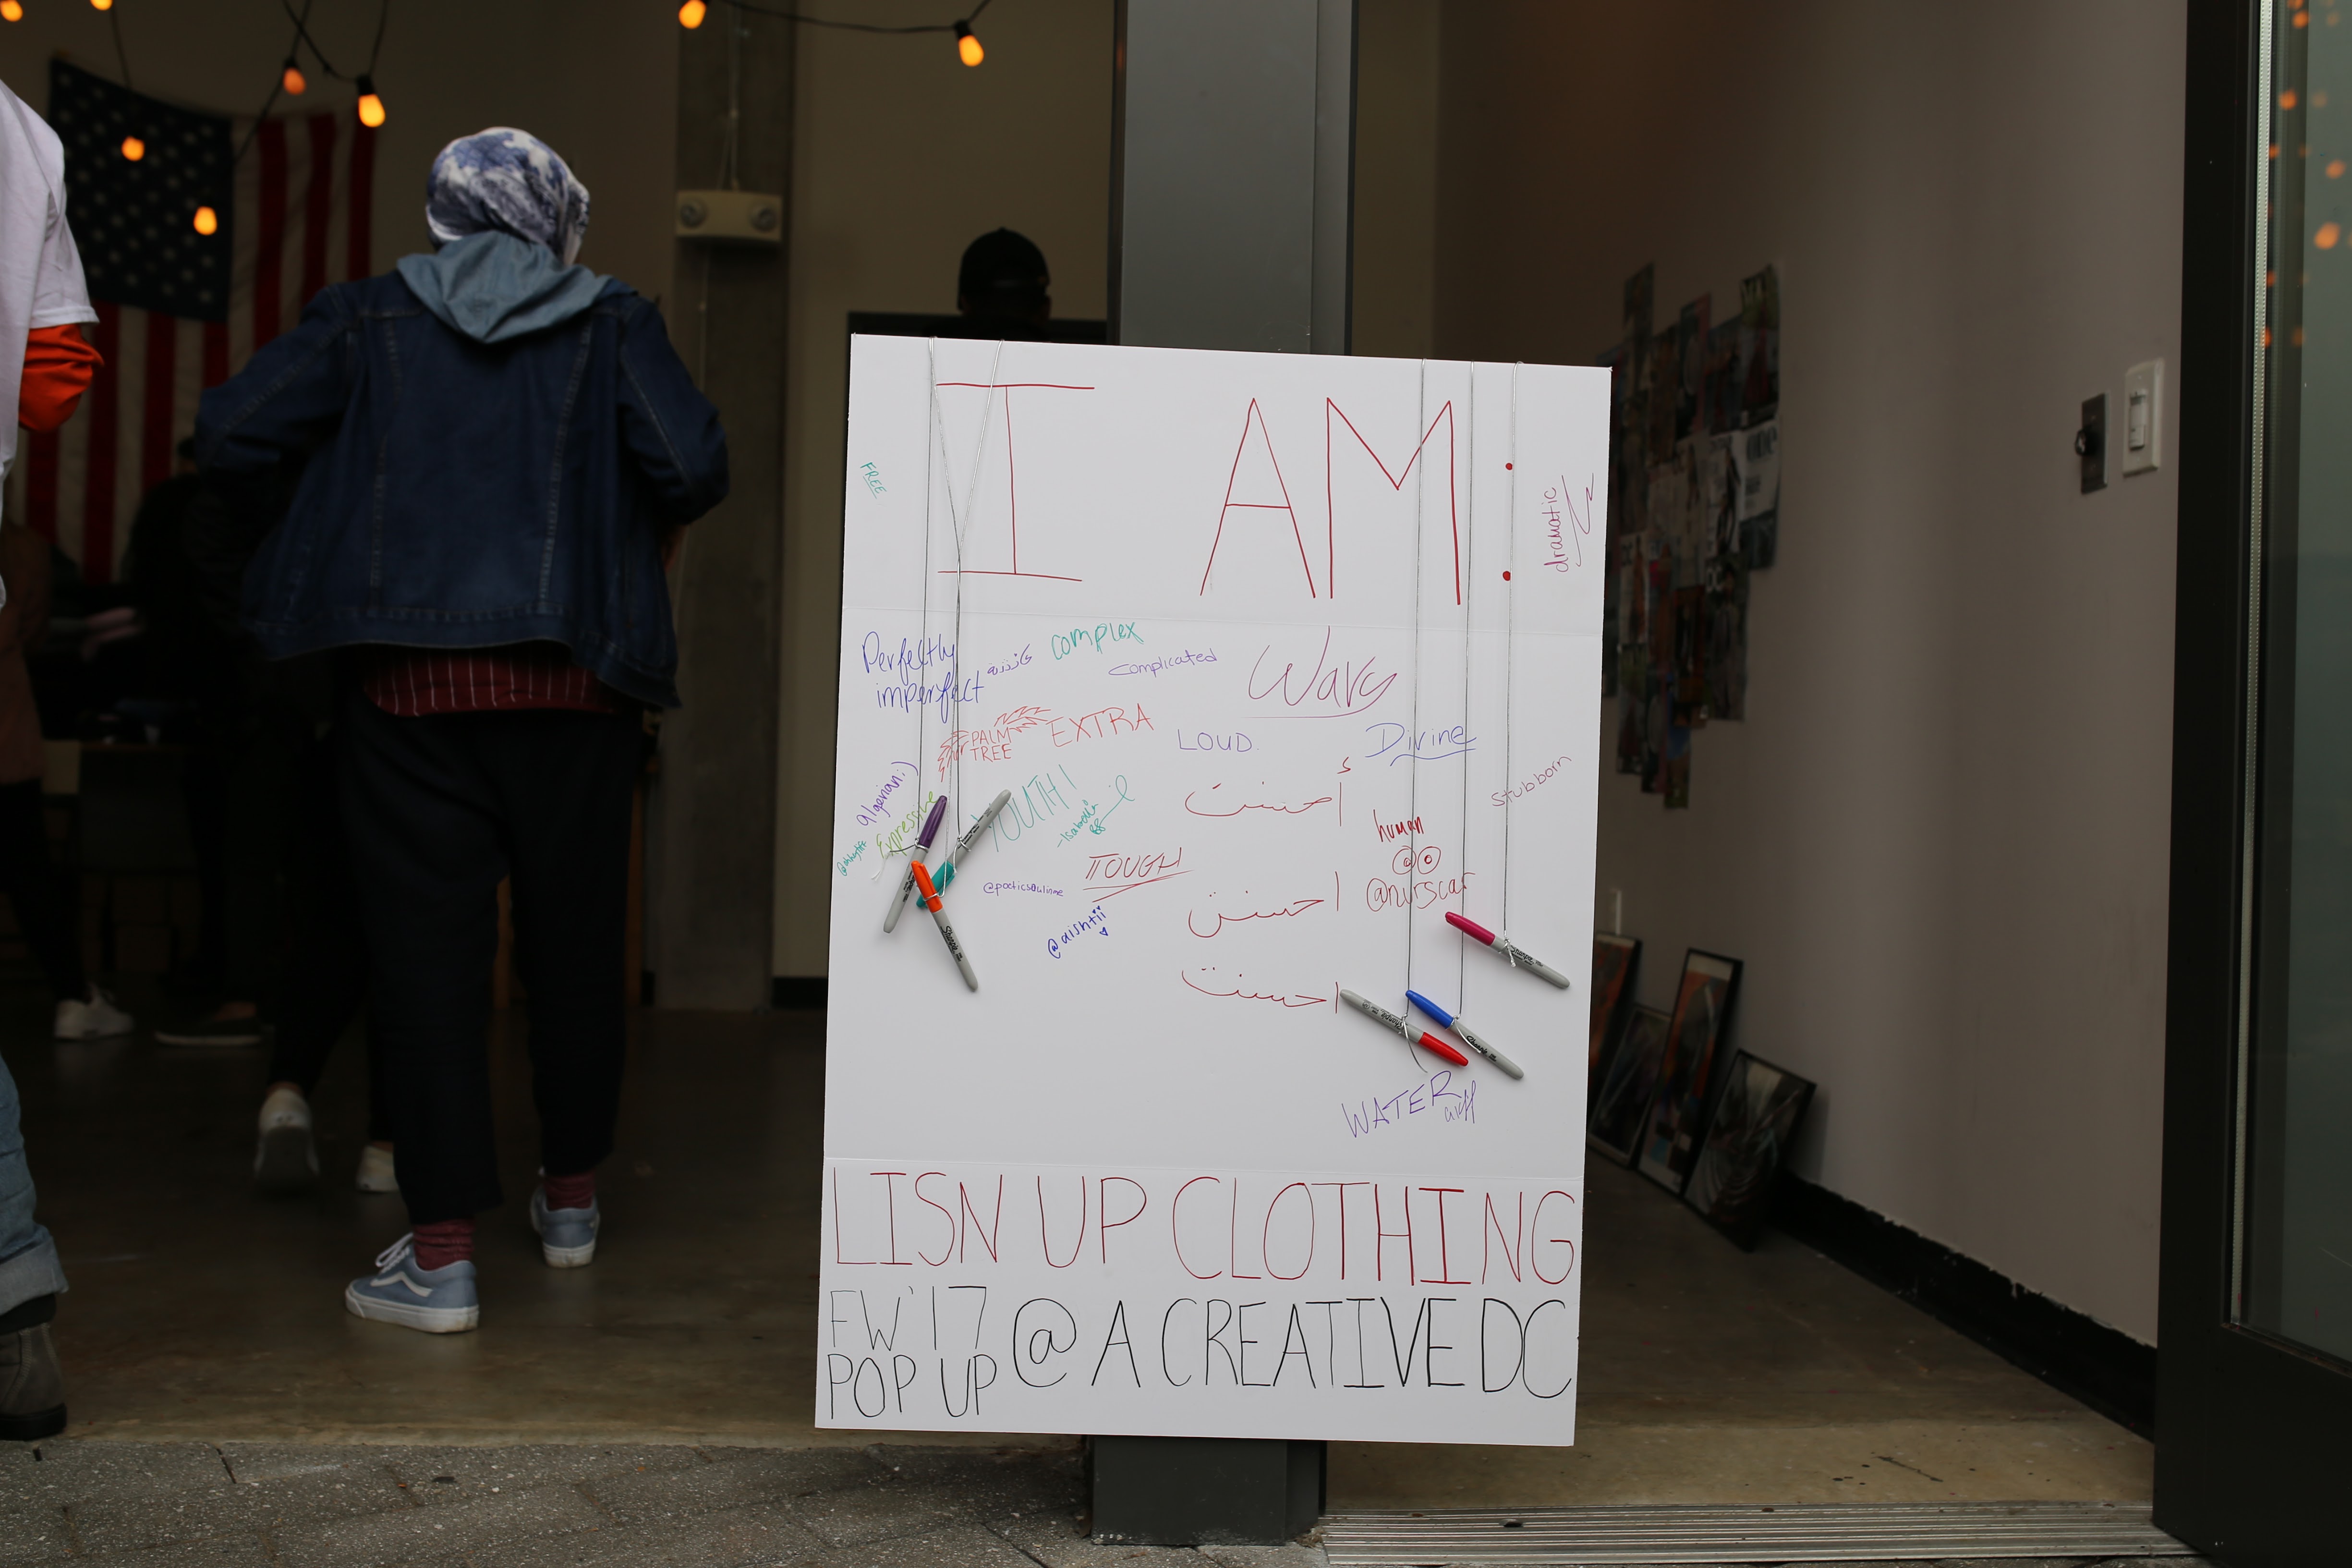 I AM:
FREE
dramatic
Perfectly
imperfect
complex
Complicated
Wavy
PALM
TREE
EXTRA
LOUD.
Divine
algerian:)
Expressive
YOUTH!
أحسنت
stubborn
human
@nurscar
TOUGH
احسنت
@aishtii
احسنت
WATER
LISN UP CLOTHING
FW'17
POP UP
@ A CREATIVE DC